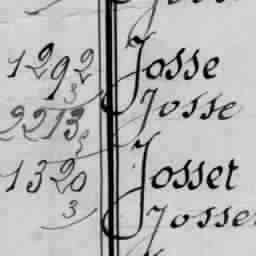 1292 Josse
3
2213 Josse
3
1320 Josset
3 Josse